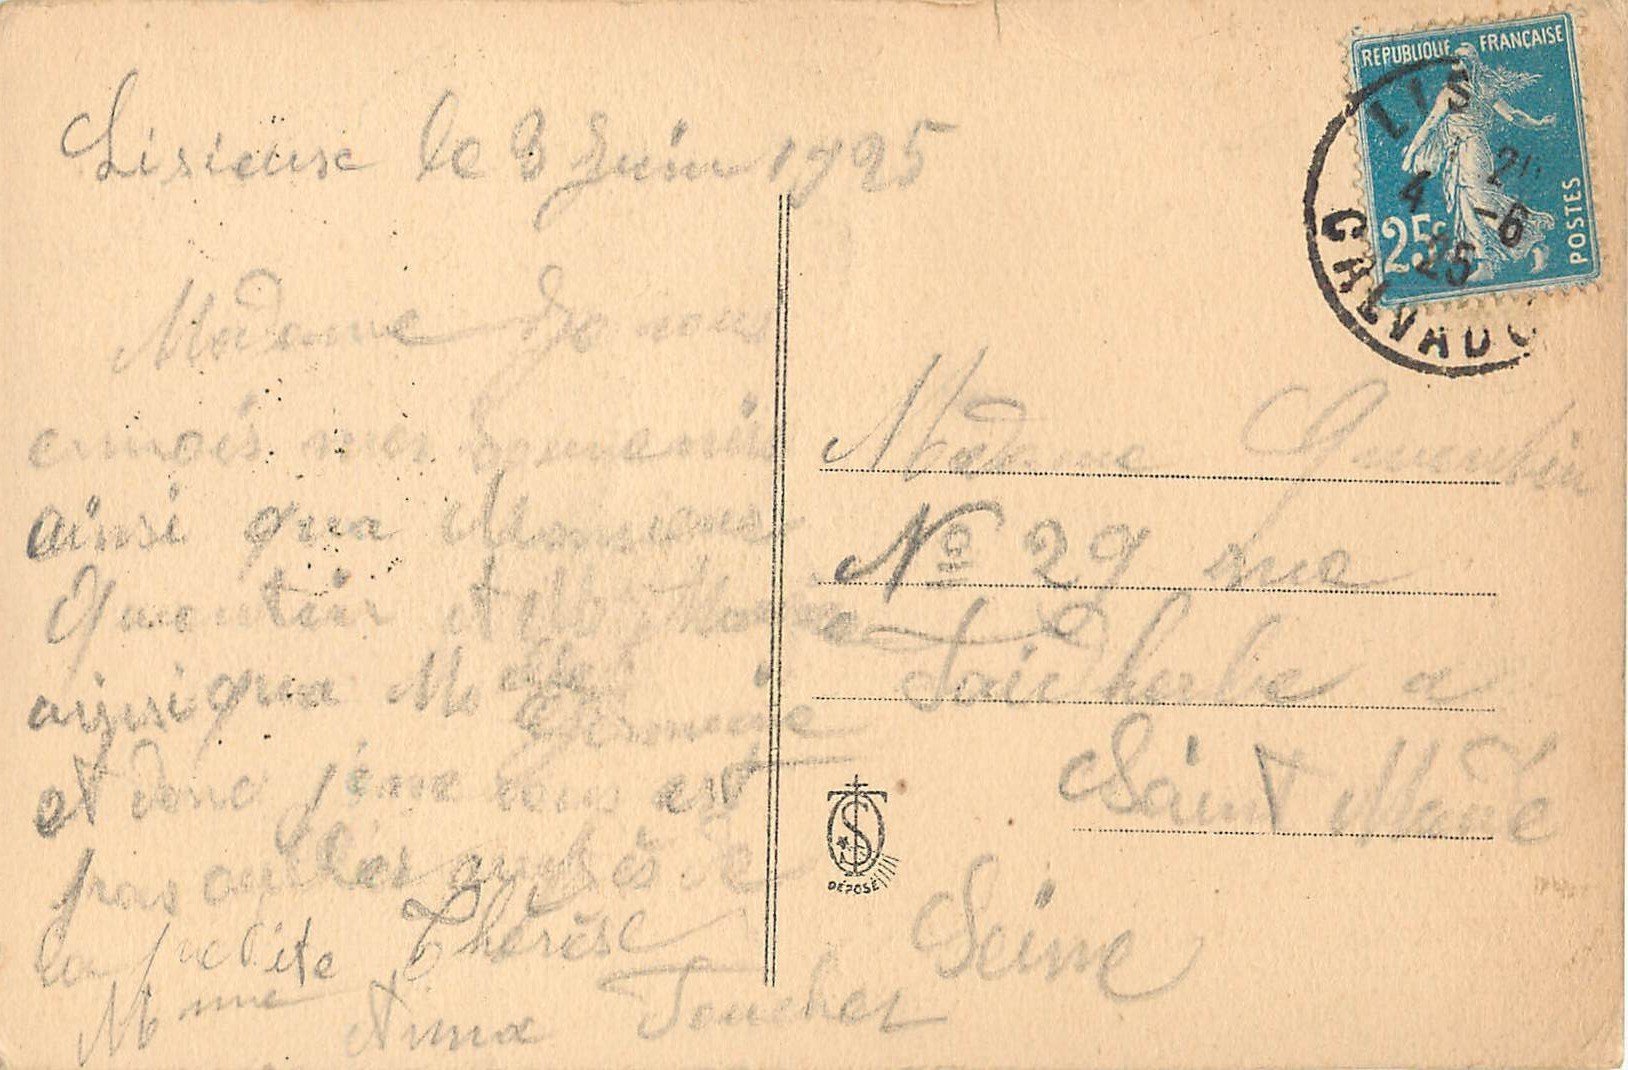 Lisieuse le 3 Juin 1925
Madame Je vous
envoiés mes souvenirs
ainsi qua Monsieur
Quentin et
ainsi qua Mlle Germaine
et donc j'éme vous est
pas oublier auprès de
la petite Thérèse
Mme Anna Foucher
REPUBLIQUE FRANÇAISE
25c
POSTES
LIS
4 -6
25
CALVADO
Madame Quentin
No 29 rue
Faidherbe a
Saint Mandé
Seine
DÉPOSÉ